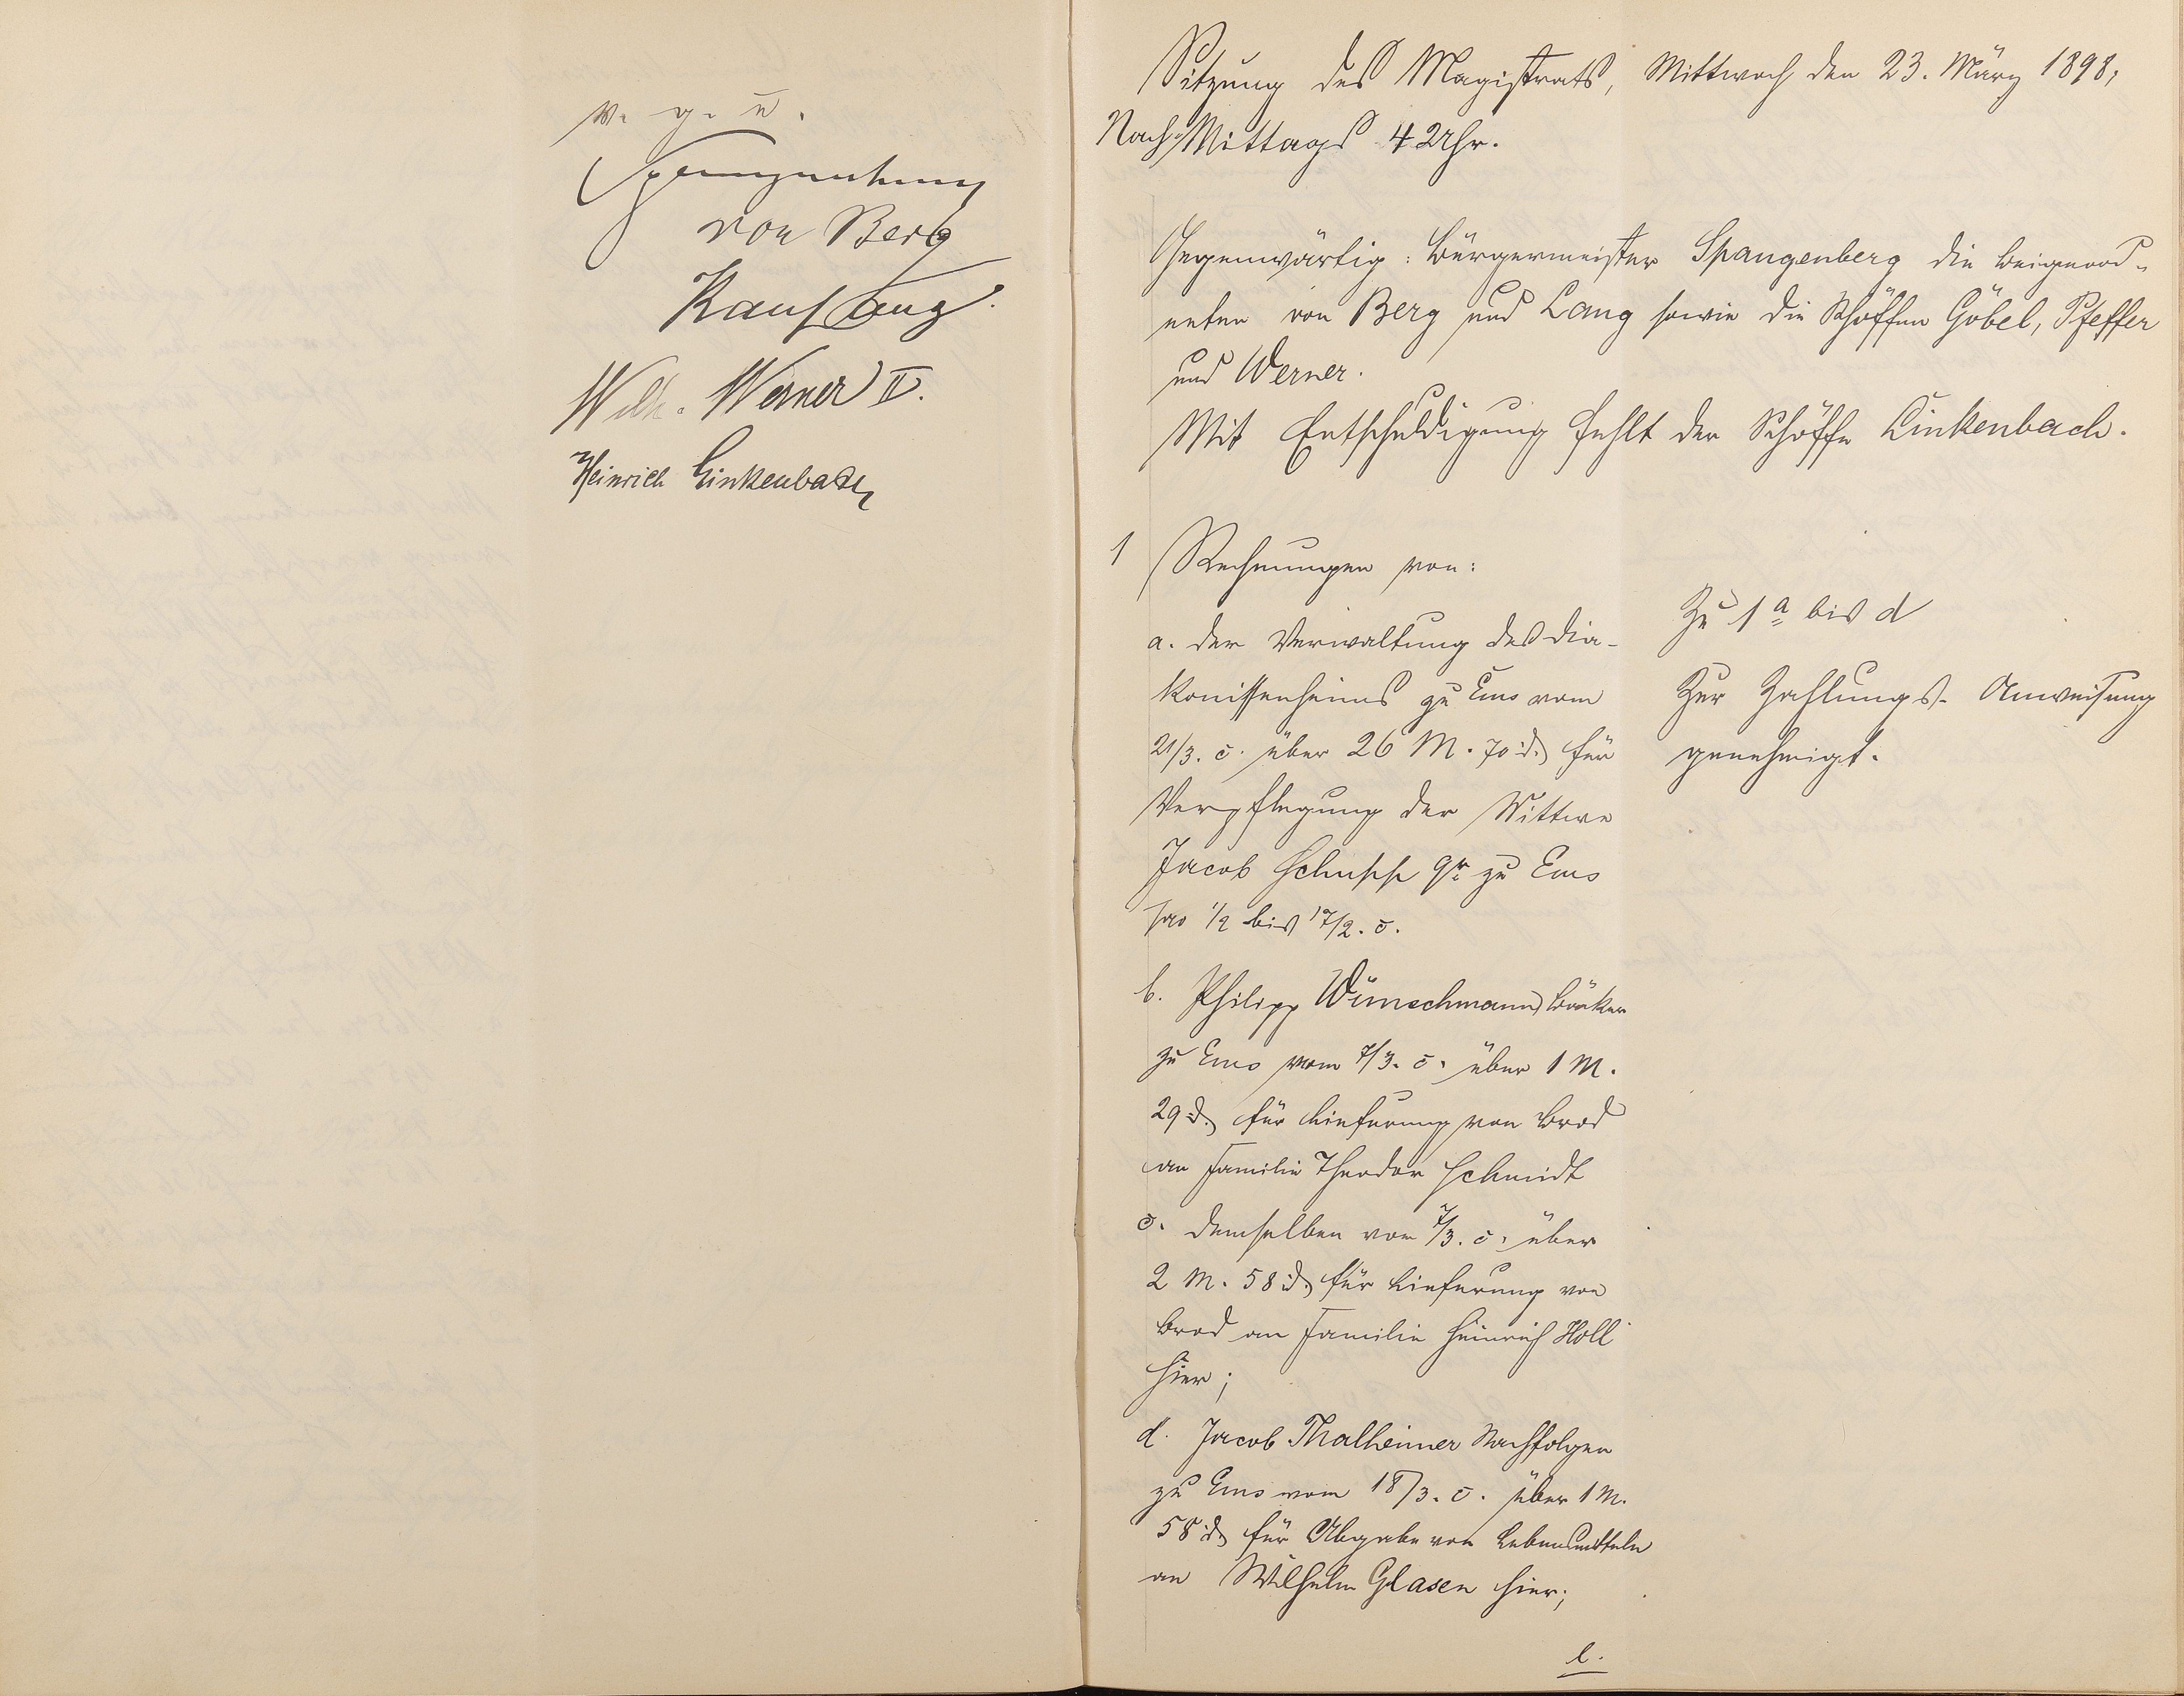 v. g. u.
Spangenberg
von Berg
Karl Lang.
Wilh. Werner IV.
Heinrich Linkenbach
Sitzung des Magistrats, Mittwoch den 23. März 1898,
Nach-Mittags 4 Uhr.
Gegenwärtig: Bürgermeister Spangenberg die Beigeord-
neten von Berg und Lang sowie die Schöffen Göbel, Pfeffer
und Werner.
Mit Entschuldigung fehlt der Schöffe Linkenbach.
1 Rechnungen von:
a. der Verwaltung des Dia-
konissenheims zu Ems vom
21/3. c. über 26 M. 70 d. für
Verpflegung der Wittwe
Jacob Schupp zu Ems
pro 1/2 bis 17/2. c.
b. Philipp Wünschmann, Bäcker
zu Ems vom 7/3. c. über 1 M.
29 d. für Lieferung von Brod
an Familie Theodor Schmidt
c. demselben vom 7/3. c. über
2 M. 58 d. für Lieferung von
Brod an Familie Heinrich Holl
hier;
d. Jacob Thalheimer Nachfolger
zu Ems vom 18/3. c. über 1 M.
58 d. für Abgabe von Lebensmitteln
an Wilhelm Glasen hier;
Zu 1 a bis d
Zur Zahlungs-Anweisung
genehmigt.
e.